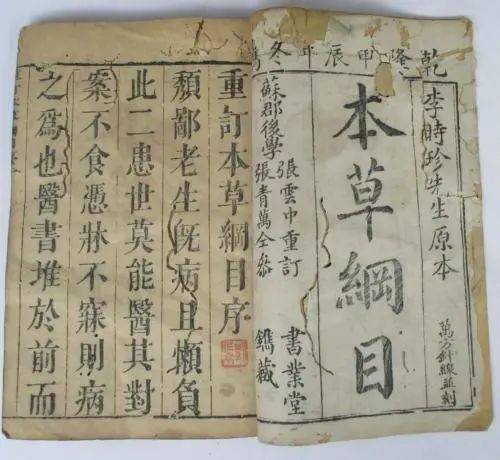 乾隆甲辰年冬鐫
李時珍先生原本
本草綱目
萬方針線並刻
張雲中重訂
蘇郡後學
張青萬仝參
書業堂
鐫藏
重訂本草綱目序
頹鄙老生旣病且懶負
此二患世莫能醫其對
案不食憑牀不寐則病
之爲也醫書堆於前而